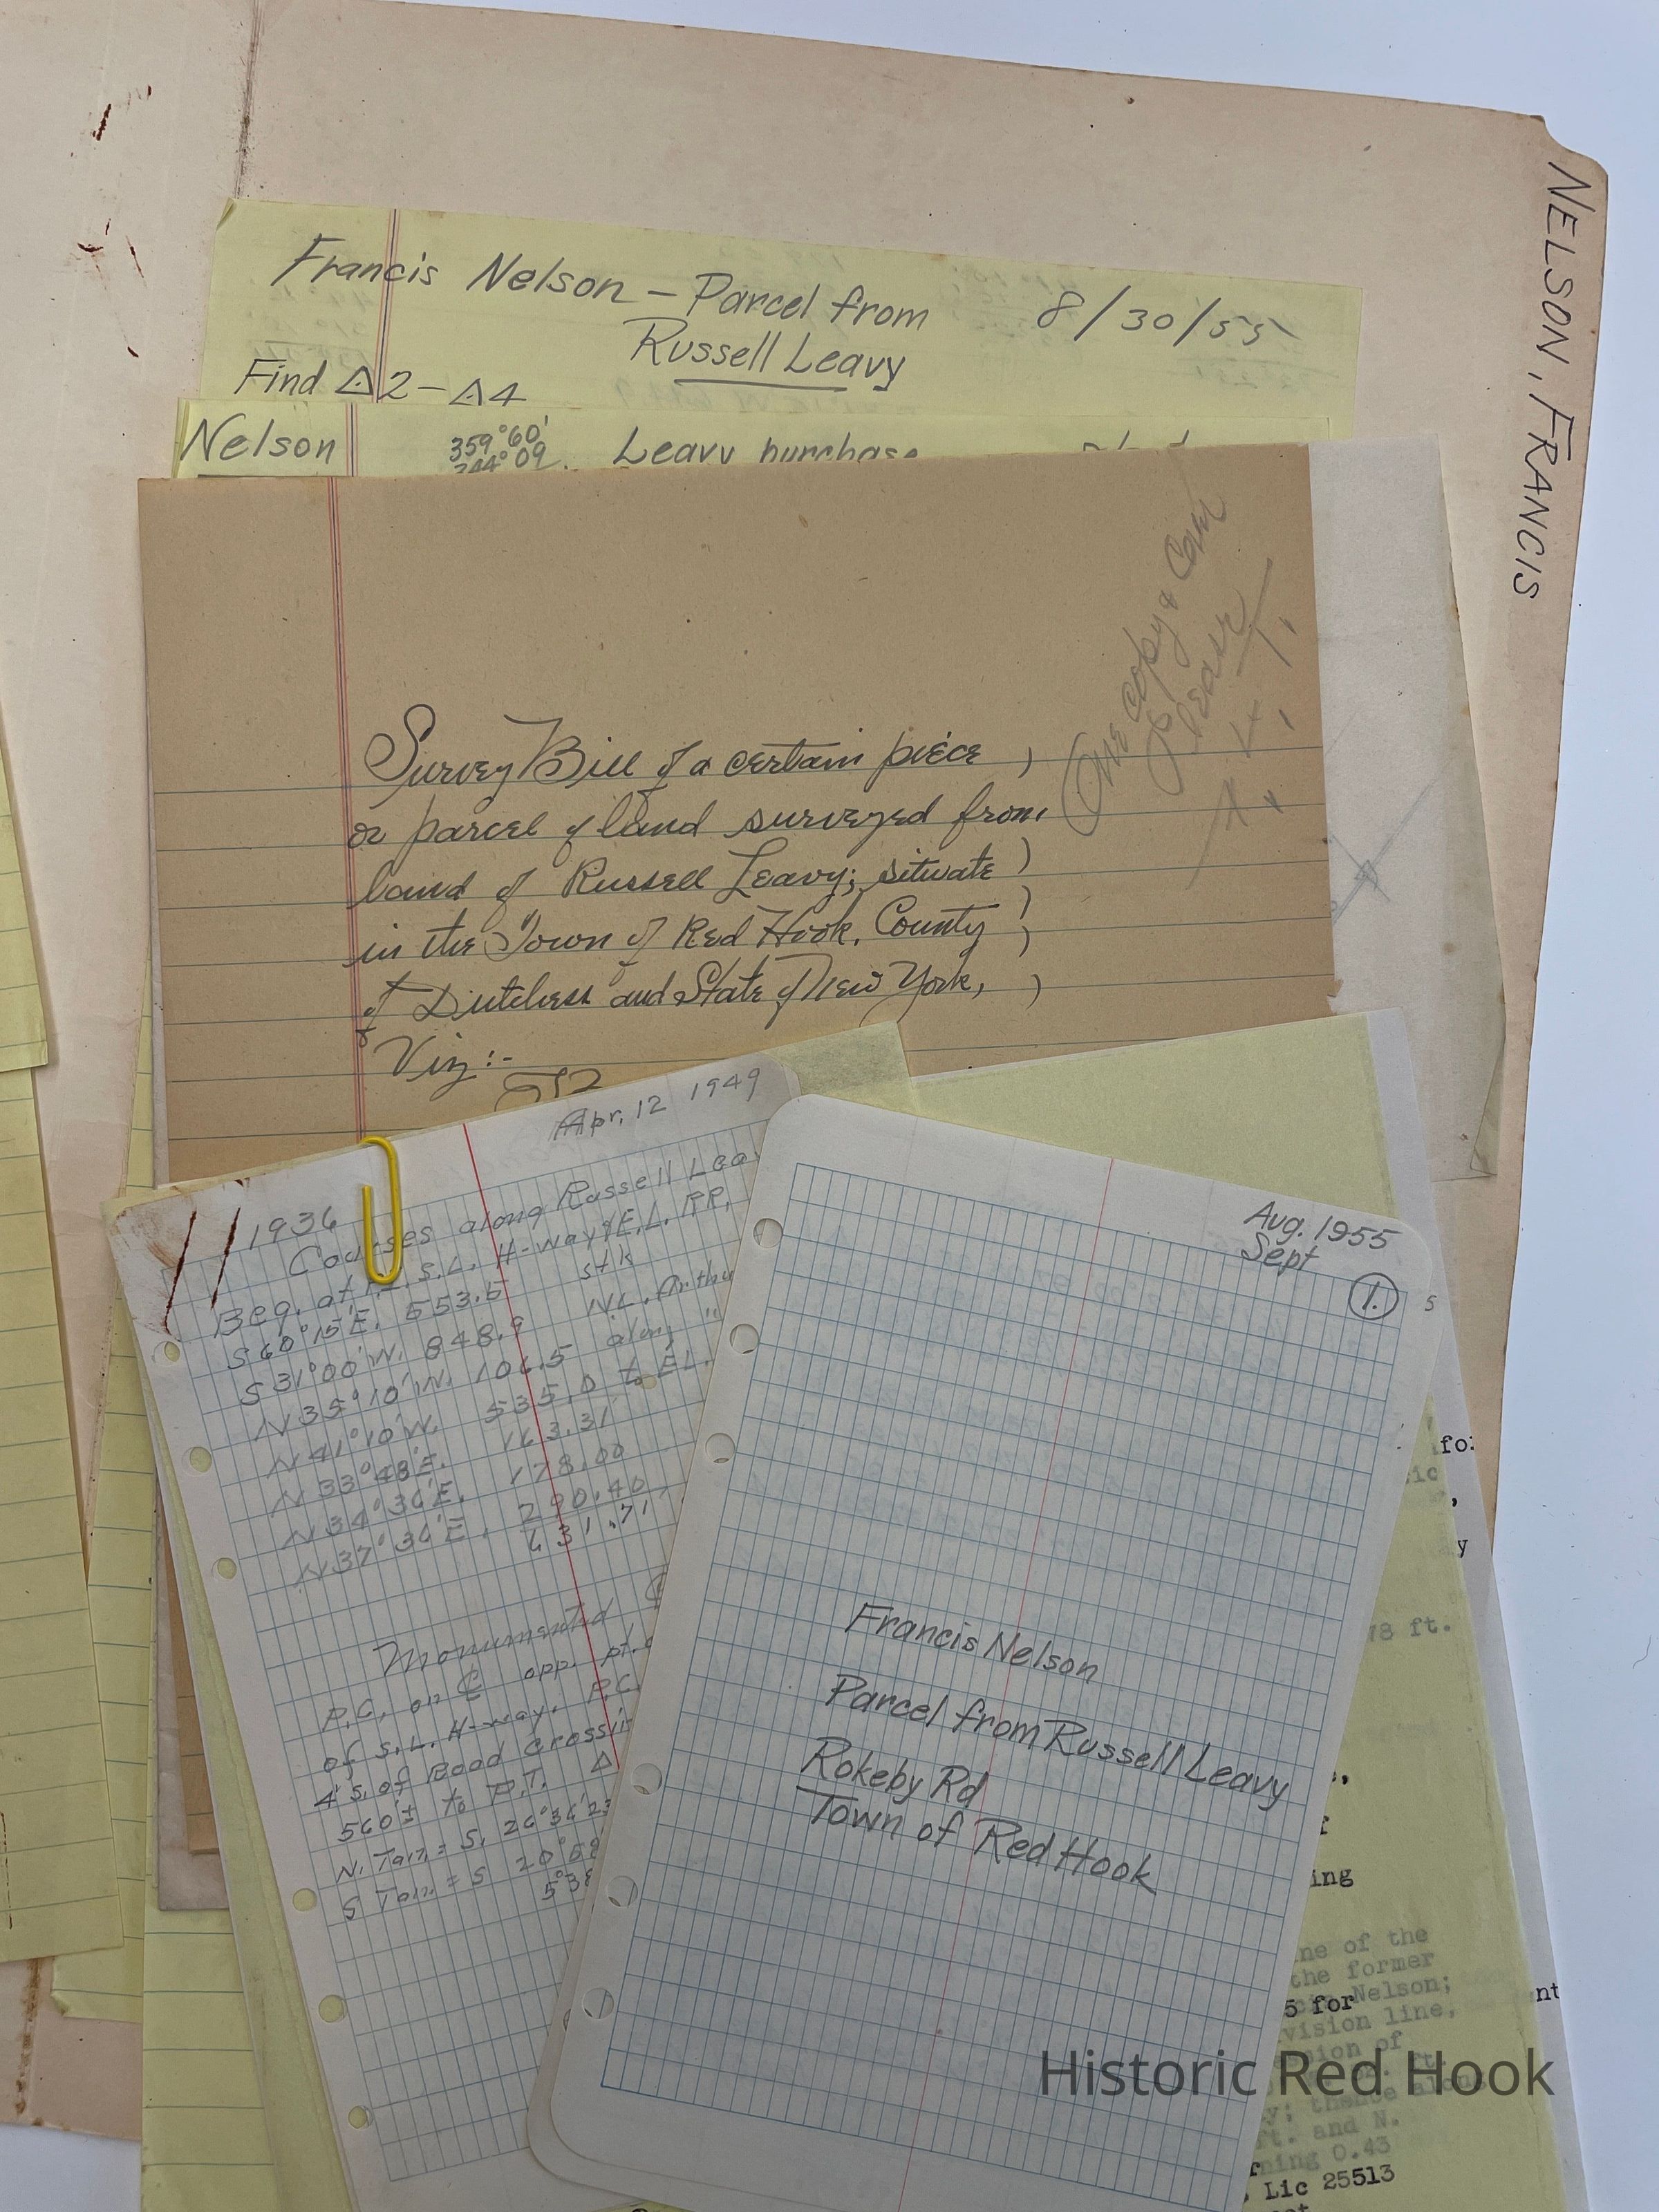 NELSON, FRANCIS
Francis Nelson – Parcel from
Russell Leavy
8/30/55
Find △2 – △4
Nelson
359°60'
244°09
Leavy purchase
One copy & Carb
please
Survey Bill of a certain piece )
or parcel of land surveyed from
land of Russell Leavy; situate )
in the Town of Red Hook, County )
of Dutchess and State of New York, )
Viz:-
Apr. 12 1949
1936
Courses along Russell Lea
Beg. at S.L. H-way & E.L. RR,
S 60°15'E. 553.5 stk
S 31°00'W. 848.9 NL. Arthu
N 35°10'W. 106.5 along "
N 41°10'W. 535.0 to EL.
N 33°48'E. 163.31
N 34°36'E. 178.00
N 37°36'E. 290.40
631.71
Monumented ℄
P.C. on ℄ opp. pt.
of S.L. H-way. P.C.
4' S. of Road Crossin
560'± to P.T. △
N. Tan = S. 26°36'23
S Tan. = S 20°58
5°38
Aug. 1955
Sept
1.
5
Francis Nelson
Parcel from Russell Leavy
Rokeby Rd
Town of Red Hook
for
ic
,
y
78 ft.
ing
ne of the
the former
Nelson;
5 for
nt
vision line,
nion of
ft.
y; thence along
ft. and N.
ning 0.43
Lic 25513
Historic Red Hook